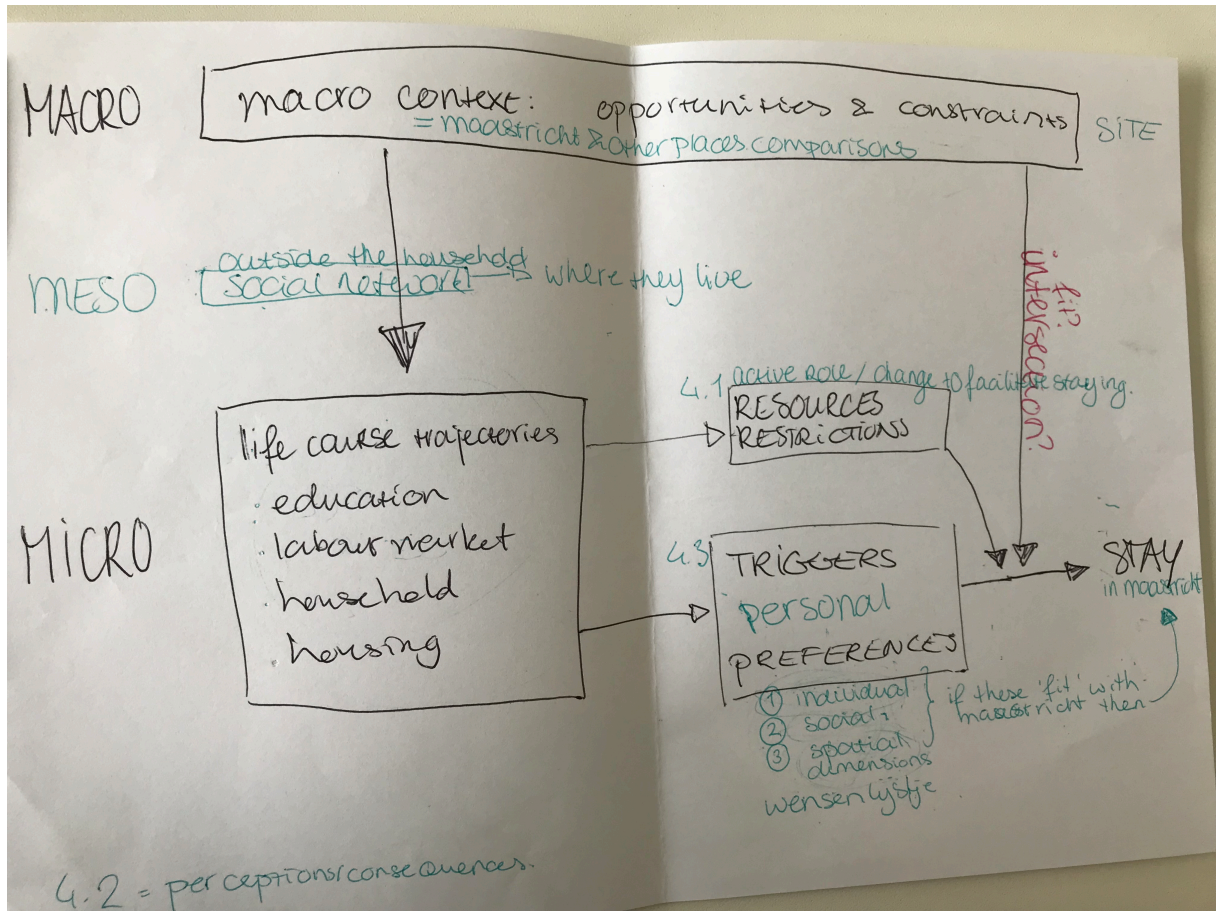 MACRO
macro context: opportunities & constraints
= maastricht & other places comparisons
SITE
MESO
outside the household
social network
where they live
fit?
intersection?
4.1 active role / change to facilitate staying.
RESOURCES
RESTRICTIONS
MICRO
life course trajectories
· education
· labour market
· household
· housing
4.3
TRIGGERS
personal
PREFERENCES
STAY
in maastricht
① individual
② social
③ spatial
dimensions
if these 'fit' with
maastricht then
wensenlijstje
4.2 = perceptions/consequences.